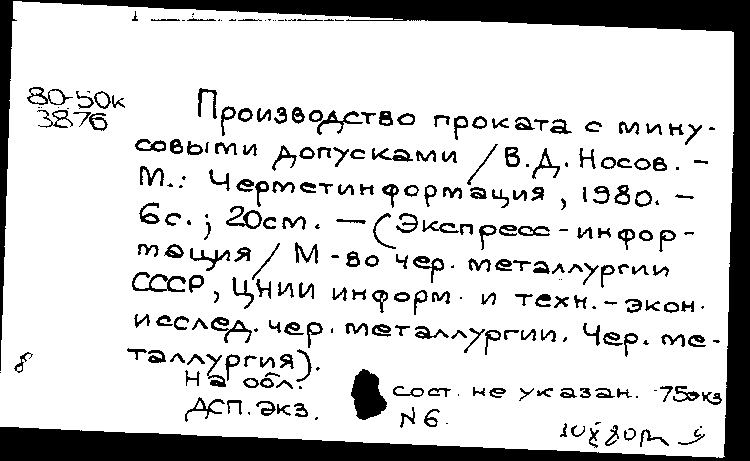 80-50к
3876
Производство проката с мину-
совыми допусками / В.Д. Носов. –
М.: Черметинформация, 1980. –
6с.; 20см. — (Экспресс-инфор-
мация / М-во чер. металлургии
СССР, ЦНИИ информ. и техн.-экон.
исслед. чер. металлургии. Чер. ме-
таллургия).
8
На обл.: сост. не указан. 75экз
ДСП. экз. №6.